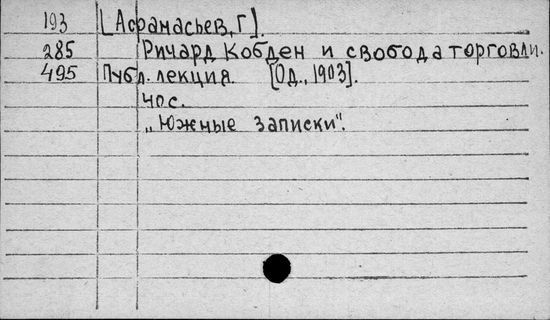 193 [Афанасьев, Г].
285 Ричард Кобден и свобода торговли.
495 Публ. лекция. [Од., 1903].
40 с.
„Южные записки".